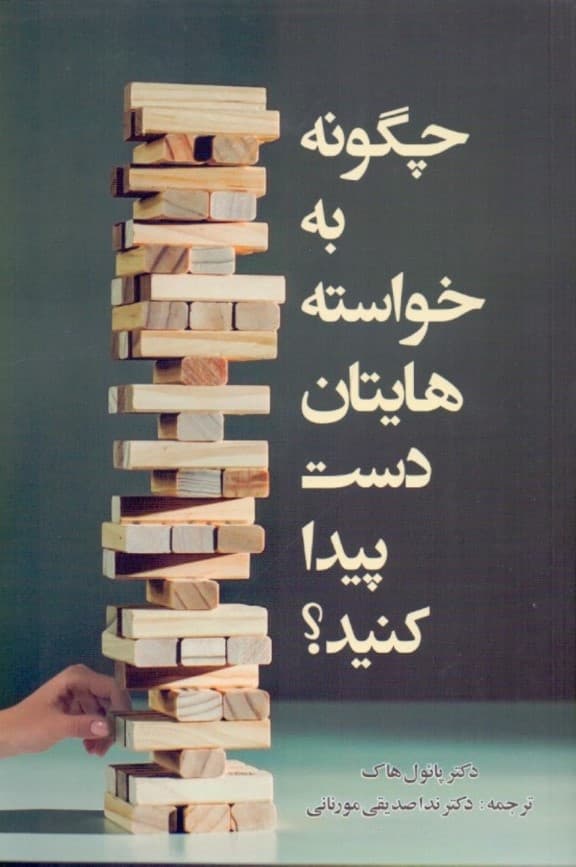 چگونه
به
خواسته
هایتان
دست
پیدا
کنید؟
دکتر پائول هاک
ترجمه: دکتر ندا صدیقی مورنانی